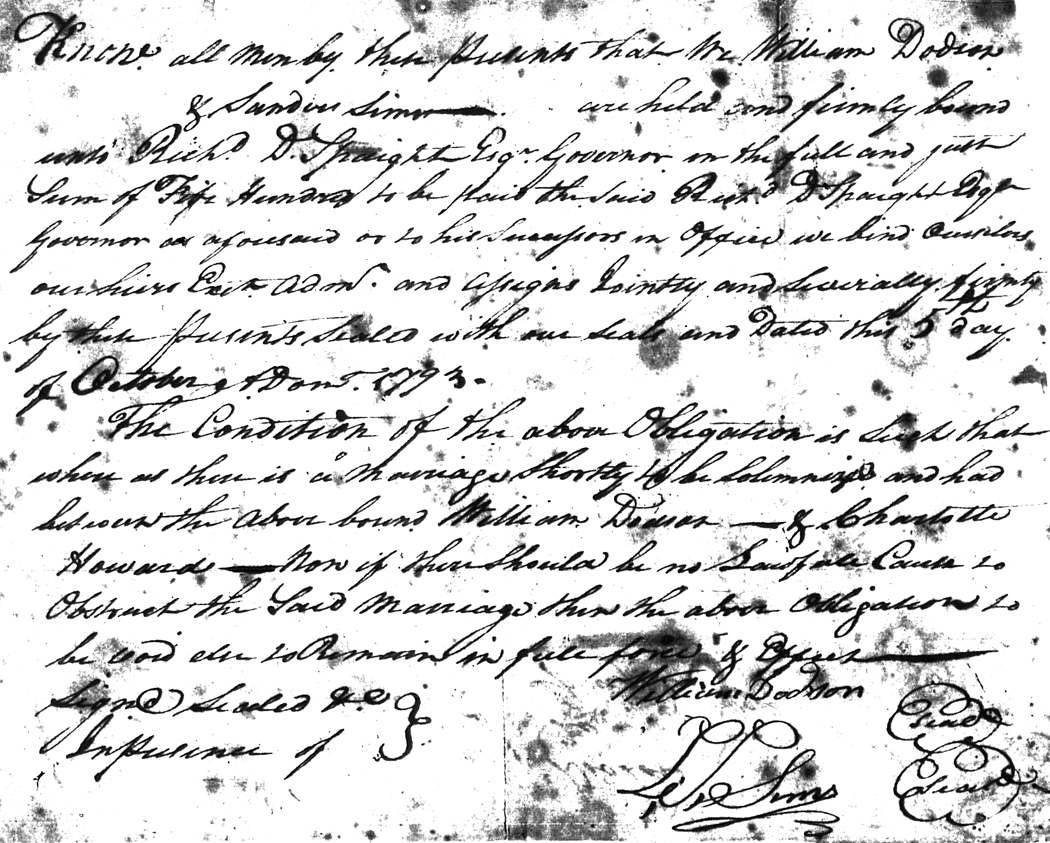 Know all Men by these presents that We William Dodson
& Sanders Sims are held and firmly bound
unto Richd. D. Spaight Esqr. Governor in the full and just
Sum of Five Hundred to be paid the said Richd. D Spaight Esqr
Governor as aforesaid or to his Successors in Office we bind ourselves
our hiers Exrs. Admr. and assigns Jointly and Severally firmly
by these presents Sealed with our Seals and Dated this 5th day
of October A Dom. 1793.
The Condition of the above Obligation is Such that
where as there is a Marriage Shortly to be Solemnized and had
between the above bound William Dodson & Charlotte
Howard Now if there Should be no Lawfull Cause to
Obstruct the Said Marriage then the above Obligation to
be void else to Remain in full force & Effect
Signd Sealed &c
In presence of
William Dodson Seal
Sims Seal